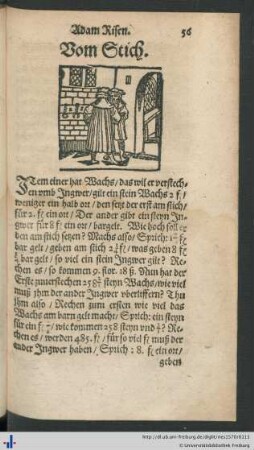 Adam Risen. 56
Vom Stich.
ITem einer hat Wachs/ das wil er verstech-
en vmb Ingwer/ gilt ein stein Wachs 2 f/
weniger ein halb ort/ den setzt der erst am stich/
für 2. ein ort/ Der ander gibt ein steyn In-
gwer für 8 f/ ein ort/ bargelt. Wie hoch soll er
den am stich setzen? Machs also/ Sprich:
bar gelt/ geben am stich was geben 8
bar gelt/ so viel ein stein Ingwer gilt? Re-
chen es/ so kommen 9. flor. 18 ß. Nun hat der
Erste zuuerstechen 258 steyn Wachs/ wie viel
muß jhm der ander Ingwer vberliffern? Thu
jhm also/ Rechen zum ersten wie viel das
Wachs am barn gelt macht/ Sprich: ein steyn
für ein wie kommen 258 steyn vnd Re-
chen es/ werden 485. f/ für so viel f/ muß der
ander Ingwer haben/ Sprich: 8. f/ ein ort/
geben
http://dl.ub.uni-freiburg.de/diglit/ries1578/0111
© Universitätsbibliothek Freiburg